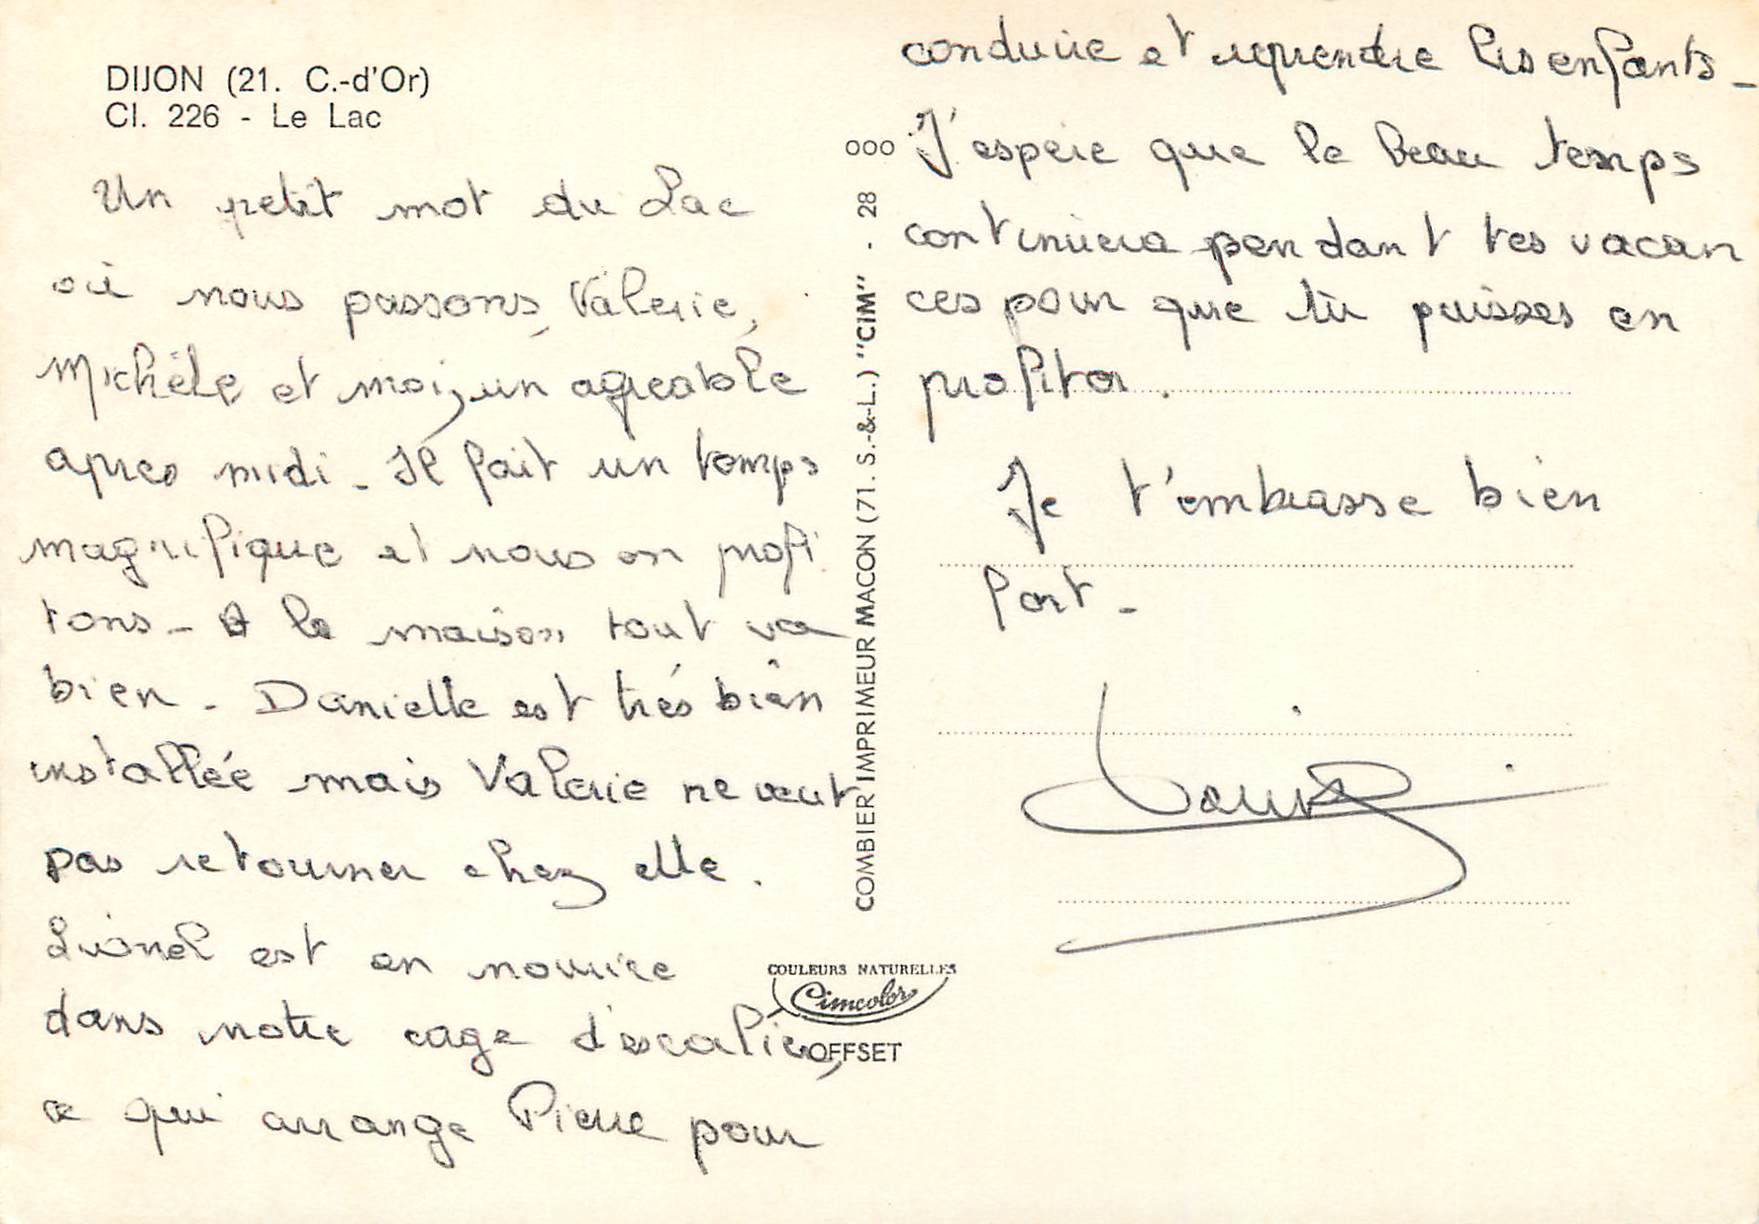 DIJON (21. C.-d'Or)
Cl. 226 - Le Lac
Un petit mot du Lac
où nous passons, Valerie,
Michèle et moi, un agreable
apres midi - Il fait un temps
magnifique et nous en profi
tons - A la maison tout va
bien - Danielle est très bien
installée mais Valerie ne veut
pas retourner chez elle.
Lionel est en nourrice
dans notre cage d'escalier,
ce qui arrange Pierre pour
COMBIER IMPRIMEUR MACON (71. S.-&-L.) "CIM" - 28 000
COULEURS NATURELLES
Cimcolor
OFFSET
conduire et reprendre les enfants -
J'espere que le beau temps
continuera pendant tes vacan
ces pour que tu puisses en
profiter.
Je t'embrasse bien
fort -